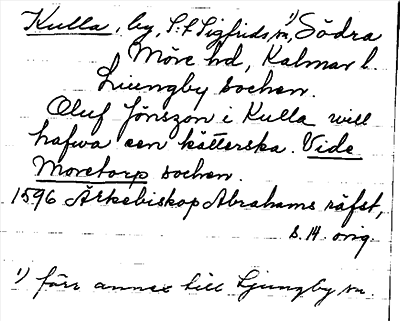 Kulla, by, S:t Sigfrids sn, 1) Södra
Möre hd, Kalmar l.
Ljungby socken.
Oluf Jönszon i Kulla will
hafwa een kätterska. Vide
Moretorp socken.
1596 Ärkebiskop Abrahams räfst,
s. 14 orig.
1) förr annex till Ljungby sn.